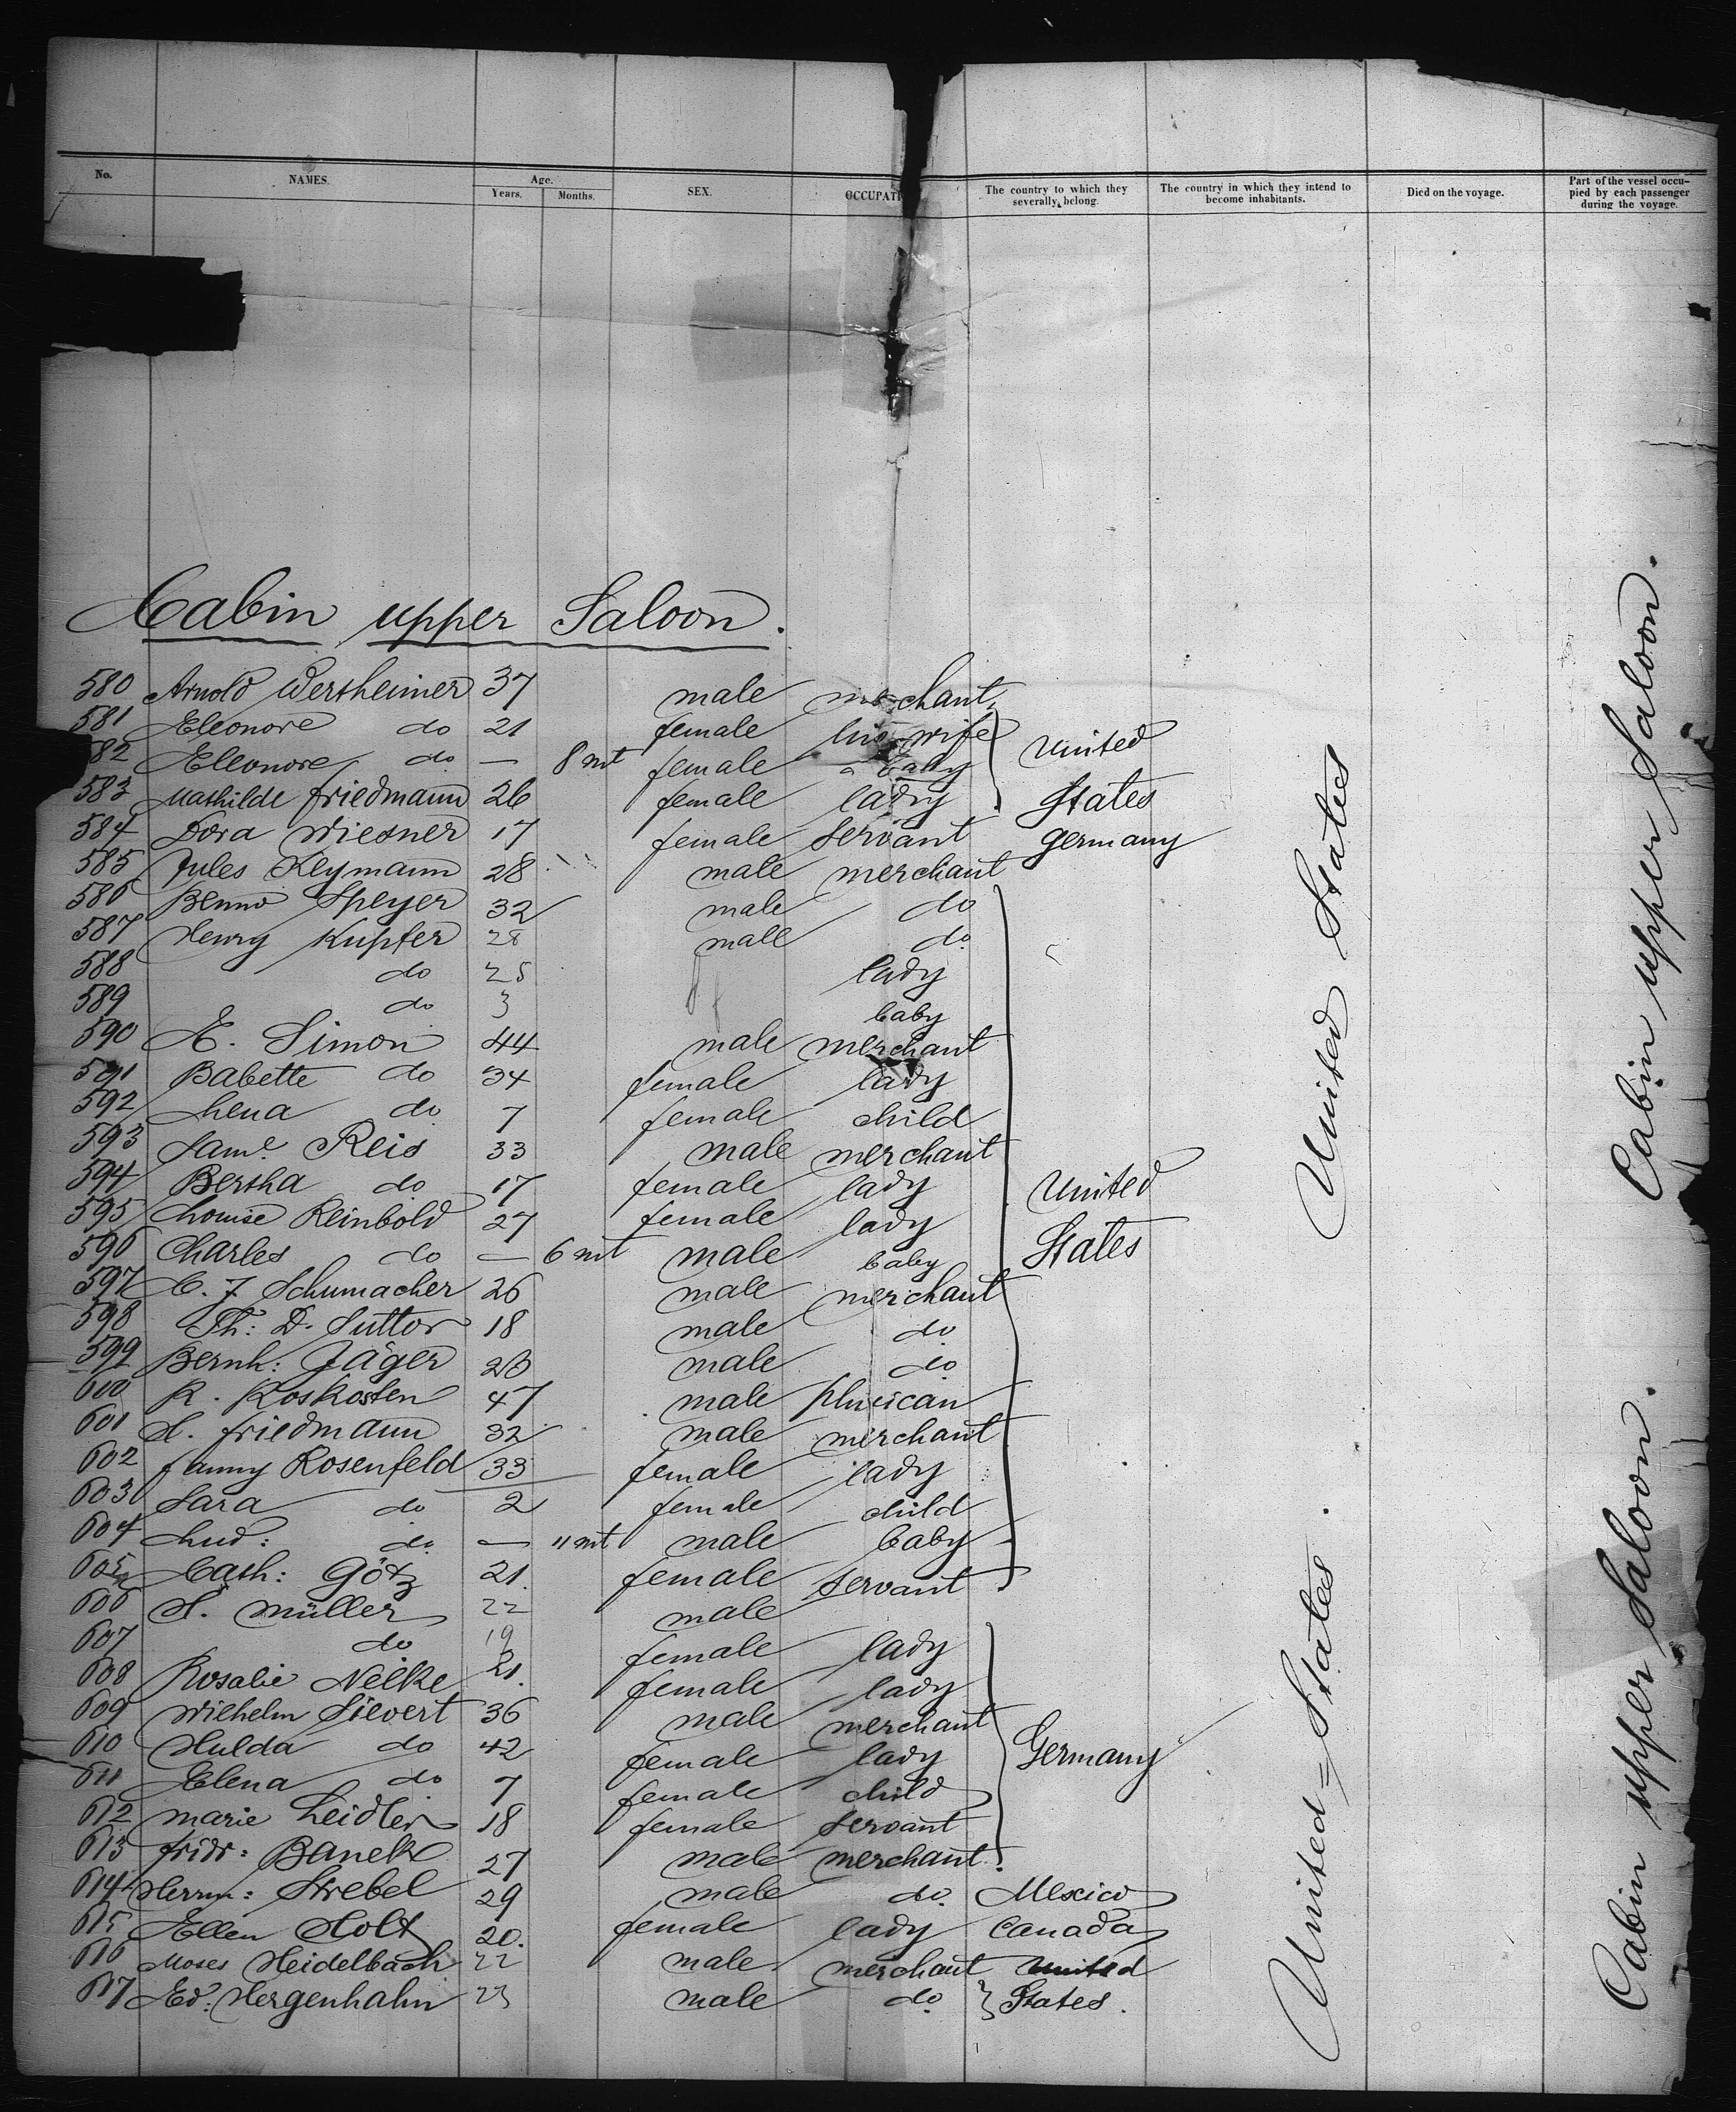 No. NAMES. Age. Years. Months. SEX. OCCUPATI The country to which they severally belong. The country in which they intend to become inhabitants. Died on the voyage. Part of the vessel occupied by each passenger during the voyage.
Cabin upper Saloon.
580 Arnold Wertheimer 37 male merchant
581 Eleonore do 21 female his wife
82 Eleonore do — 8 mt female a baby United
583 Mathilde Friedmann 26 female lady States
584 Dora Wiesner 17 female servant Germany
585 Jules Keymann 28 male merchant
586 Benno Speyer 32 male do
587 Henry Kupfer 28 male do
588 do 25 lady
589 do 3 baby
590 Simon 44 male merchant
591 Babette do 34 female lady
592 Lena do 7 female child
593 Saml Reis 33 male merchant
594 Bertha do 17 female lady United
595 Louise Reinbold 27 female lady
596 Charles do — 6 mt male baby States
597 C. F. Schumacher 26 male merchant
598 Th: D. Suttor 18 male do
599 Bernh: Jäger 26 male do
600 R. Koskosten 47 male
601 friedmann 32 male merchant
602 Fanny Rosenfeld 33 female lady
603 Sara do 2 female child
604 Lud: do — 11 mt male baby
605 Cath: Götz 21. female servant
606 Müller 22 male
607 do 19 female lady
608 Rosalie Nelke 21. female lady
609 Wilhelm Sievert 36 male merchant
610 Hulda do 42 female lady Germany
611 Elena do 7 female child
612 Marie Leidler 18 female servant
613 Fridr: Banek 27 male merchant
614 Herrm: Strebel 29 male do. Mexico
615 Ellen Holt 20. female lady Canada
616 Moses Heidelbach 22 male merchant United
617 Ed: Hergenhahn 23 male do States.
United States
United=States
Cabin upper Saloon.
Cabin upper Saloon.